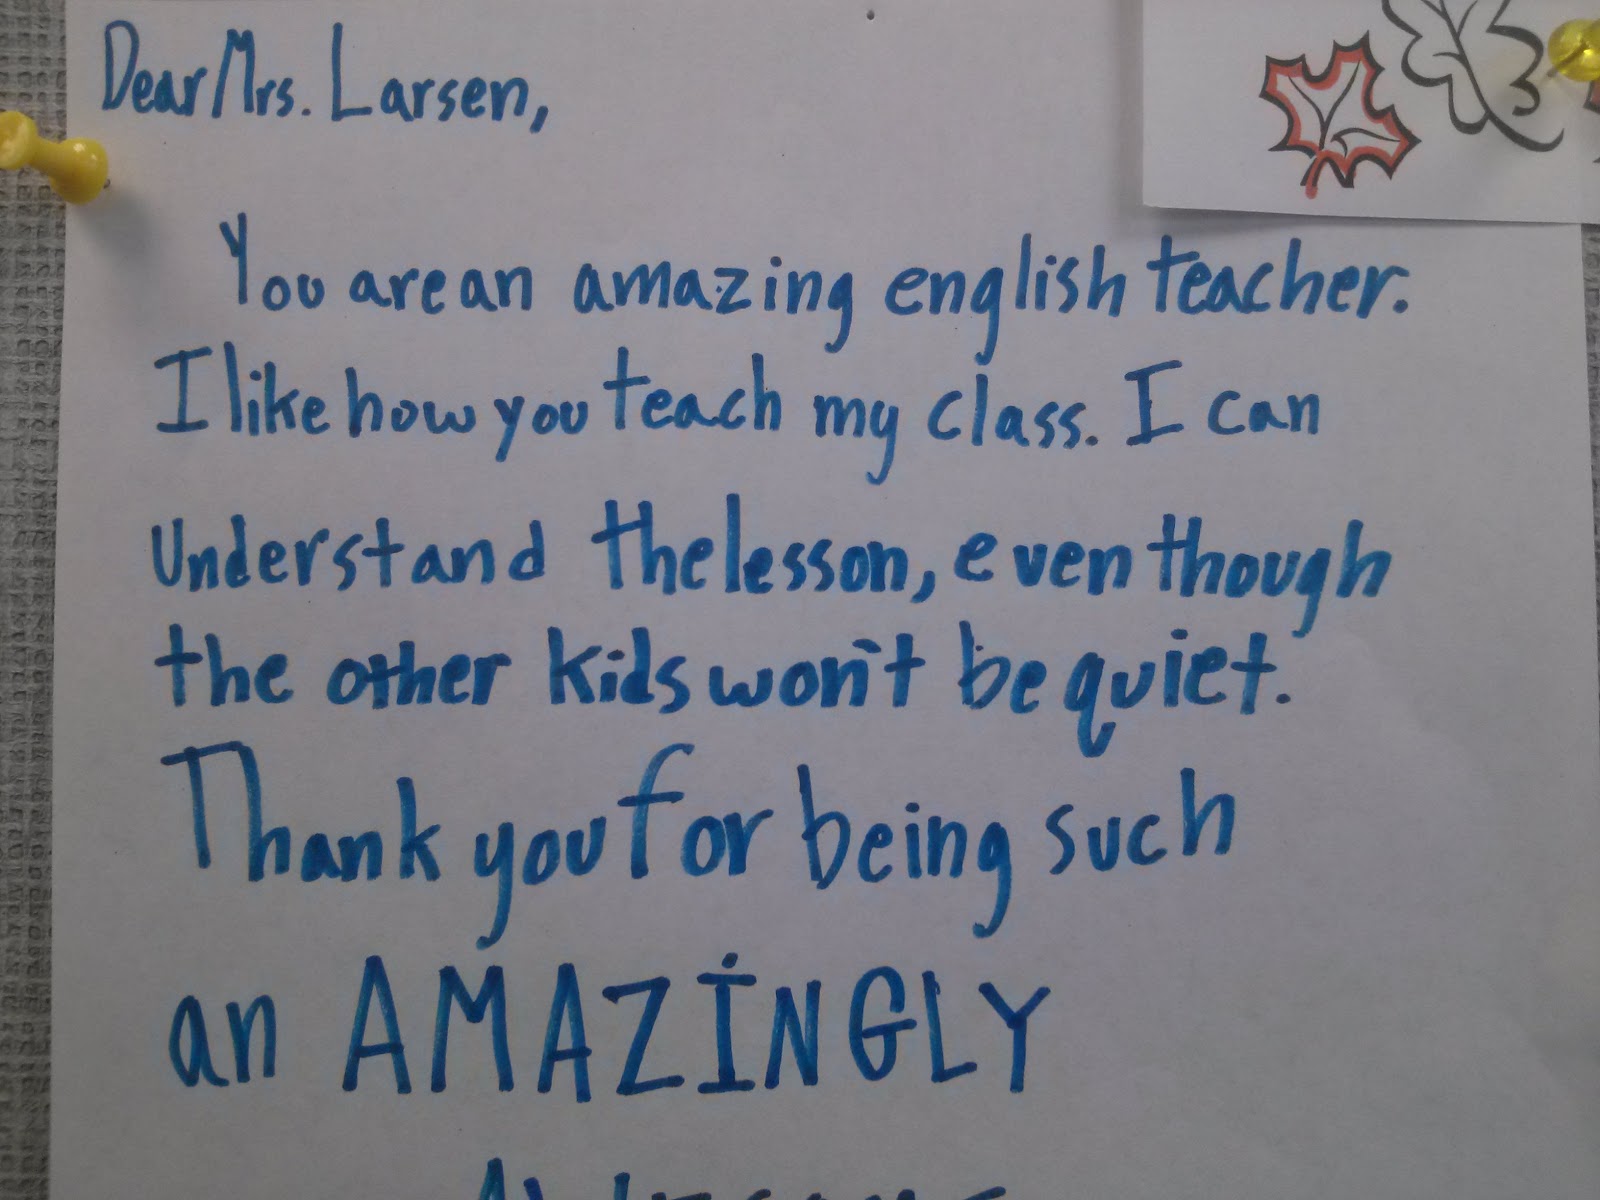 Dear Mrs. Larsen,
You are an amazing english teacher.
I like how you teach my class. I can
understand the lesson, even though
the other kids won't be quiet.
Thank you for being such
an AMAZİNGLY